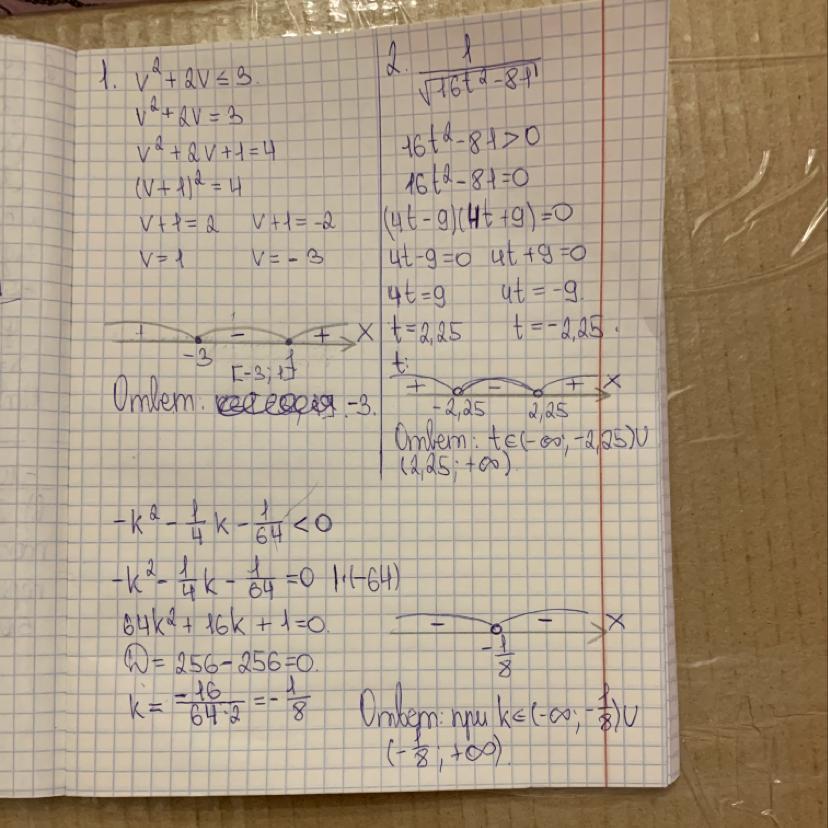 1. v² + 2v ≤ 3
v² + 2v = 3
v² + 2v + 1 = 4
(v + 1)² = 4
v + 1 = 2 v + 1 = -2
v = 1 v = -3
+ - + x
-3 1
[-3; 1]
Ответ: -3.
2. 1/√(16t² - 81)
16t² - 81 > 0
16t² - 81 = 0
(4t - 9)(4t + 9) = 0
4t - 9 = 0 4t + 9 = 0
4t = 9 4t = -9.
t = 2,25 t = -2,25.
t:
+ - + x
-2,25 2,25
Ответ: t ∈ (-∞; -2,25) ∪
(2,25; +∞)
-k² - 1/4 k - 1/64 < 0
-k² - 1/4 k - 1/64 = 0 |·(-64)
64k² + 16k + 1 = 0.
D = 256 - 256 = 0.
k = -16/(64·2) = -1/8
- - x
-1/8
Ответ: при k ∈ (-∞; -1/8) ∪
(-1/8; +∞).